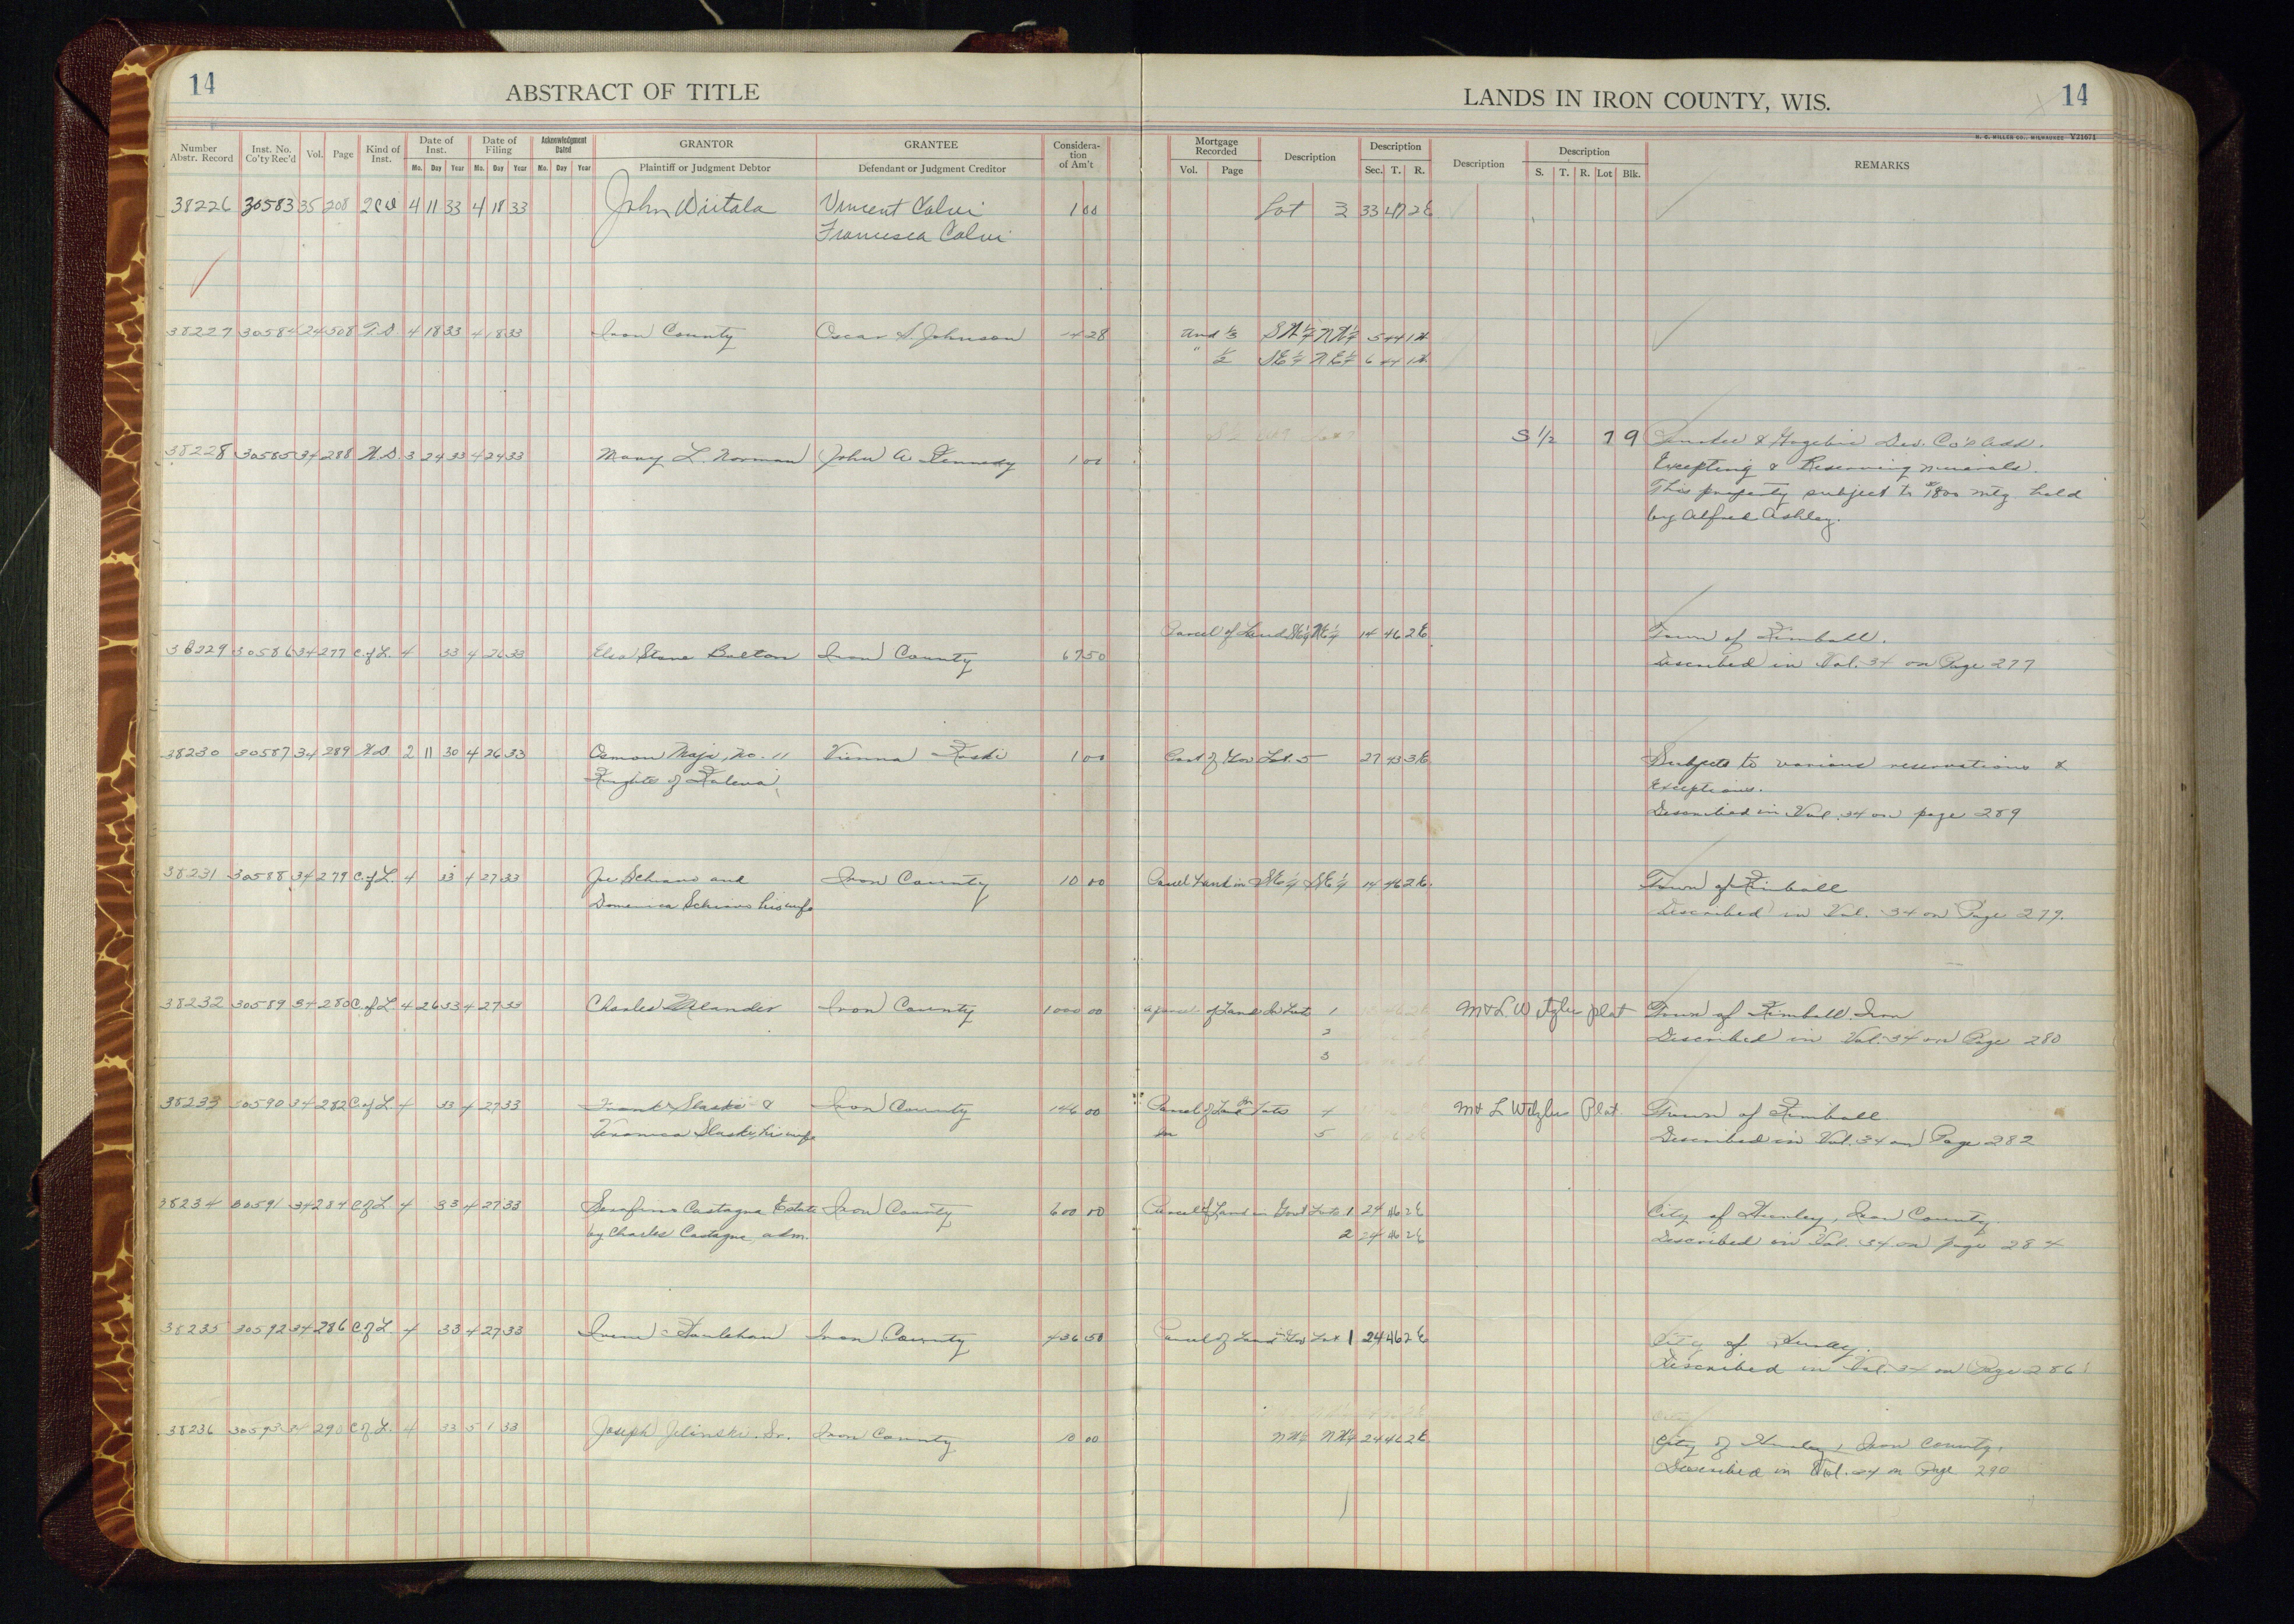 14
ABSTRACT OF TITLE
LANDS IN IRON COUNTY, WIS.
14
H. C. MILLER CO., MILWAUKEE Y21671
Number Abstr. Record
Inst. No. Co'ty Rec'd
Vol.
Page
Kind of Inst.
Date of Inst.
Mo. Day Year
Date of Filing
Mo. Day Year
Acknowledgment Dated
Mo. Day Year
GRANTOR
Plaintiff or Judgment Debtor
GRANTEE
Defendant or Judgment Creditor
Consideration of Am't
Mortgage Recorded
Vol. Page
Description
Description
Sec. T. R.
Description
Description
S. T. R. Lot Blk.
REMARKS
38226 30583 35 208 2CD 4 11 33 4 18 33 John Wiitala Vincent Calvi 1 00 Lot 3 33 47 2E
Francesca Calvi
38227 30584 24 508 T.D. 4 18 33 4 18 33 Iron County Oscar A. Johnson 4 28 und 1/3 SW1/4 NW1/4 5 44 1W
" 1/2 SE1/4 NE1/4 6 44 1W
S 1/2 7 9 & Gogebic Dev. Co's Add.
38228 30585 34 288 W.D. 3 24 33 4 24 33 Mary L. Norman John A. Kennedy 1 00 Excepting & Reserving minerals.
This property subject to $1800 mtg held
by Alfred Ashley.
Parcel of Land SW1/4 NE1/4 14 46 2E Town of Kimball.
38229 30586 34 277 C.of L. 4 33 4 26 33 Elsa Stone Bolton Iron County 67 50 Described in Vol. 34 on Page 277
38230 30587 34 289 W.D 2 11 30 4 26 33 Osmon Maja, No. 11 Vienna Koski 1 00 Part of Gov Lot. 5 27 43 3E Subject to various reservations &
Knights of Kaleva Exceptions.
Described in Vol. 34 on page 289
38231 30588 34 279 C.of L. 4 33 4 27 33 Joe Schiano and Iron County 10 00 Parcel Land in SE1/4 14 46 2E Town of Kimball
Domenica Schiano his wife Described in Vol. 34 on Page 279.
38232 30589 34 280 C.of L. 4 26 33 4 27 33 Charles Iron County 1000 00 A parcel of Land in Lots 1 M & L Wetzlers plat Town of Kimball, Iron
2 Described in Vol. 34 on Page 280
3
38233 30590 34 282 C.of L. 4 33 4 27 33 Frank Slaski & Iron County 146 00 Parcel of Land in Lots 4 M & L Wetzlers Plat Town of Kimball
Veronica Slaski, his wife in 5 Described in Vol. 34 on Page 282
38234 30591 34 284 C of L 4 33 4 27 33 Serafino Castagna Estate Iron County 600 00 Parcel of Land in Gov't Lots 1 24 46 2E City of Hurley, Iron County.
by Charles Castagna, adm. 2 24 46 2E Described in Vol. 34 on page 284
38235 30592 34 286 C of L 4 33 4 27 33 Iron County 436 50 Parcel of Land in Gov Lot 1 24 46 2E City of Hurley.
Described in Vol. 34 on Page 286
38236 30593 34 290 C of L. 4 33 5 1 33 Joseph Jelinski. Sr. Iron County 10 00 NW1/4 NW1/4 24 46 2E City of Hurley, Iron County.
Described in Vol. 34 on Page 290